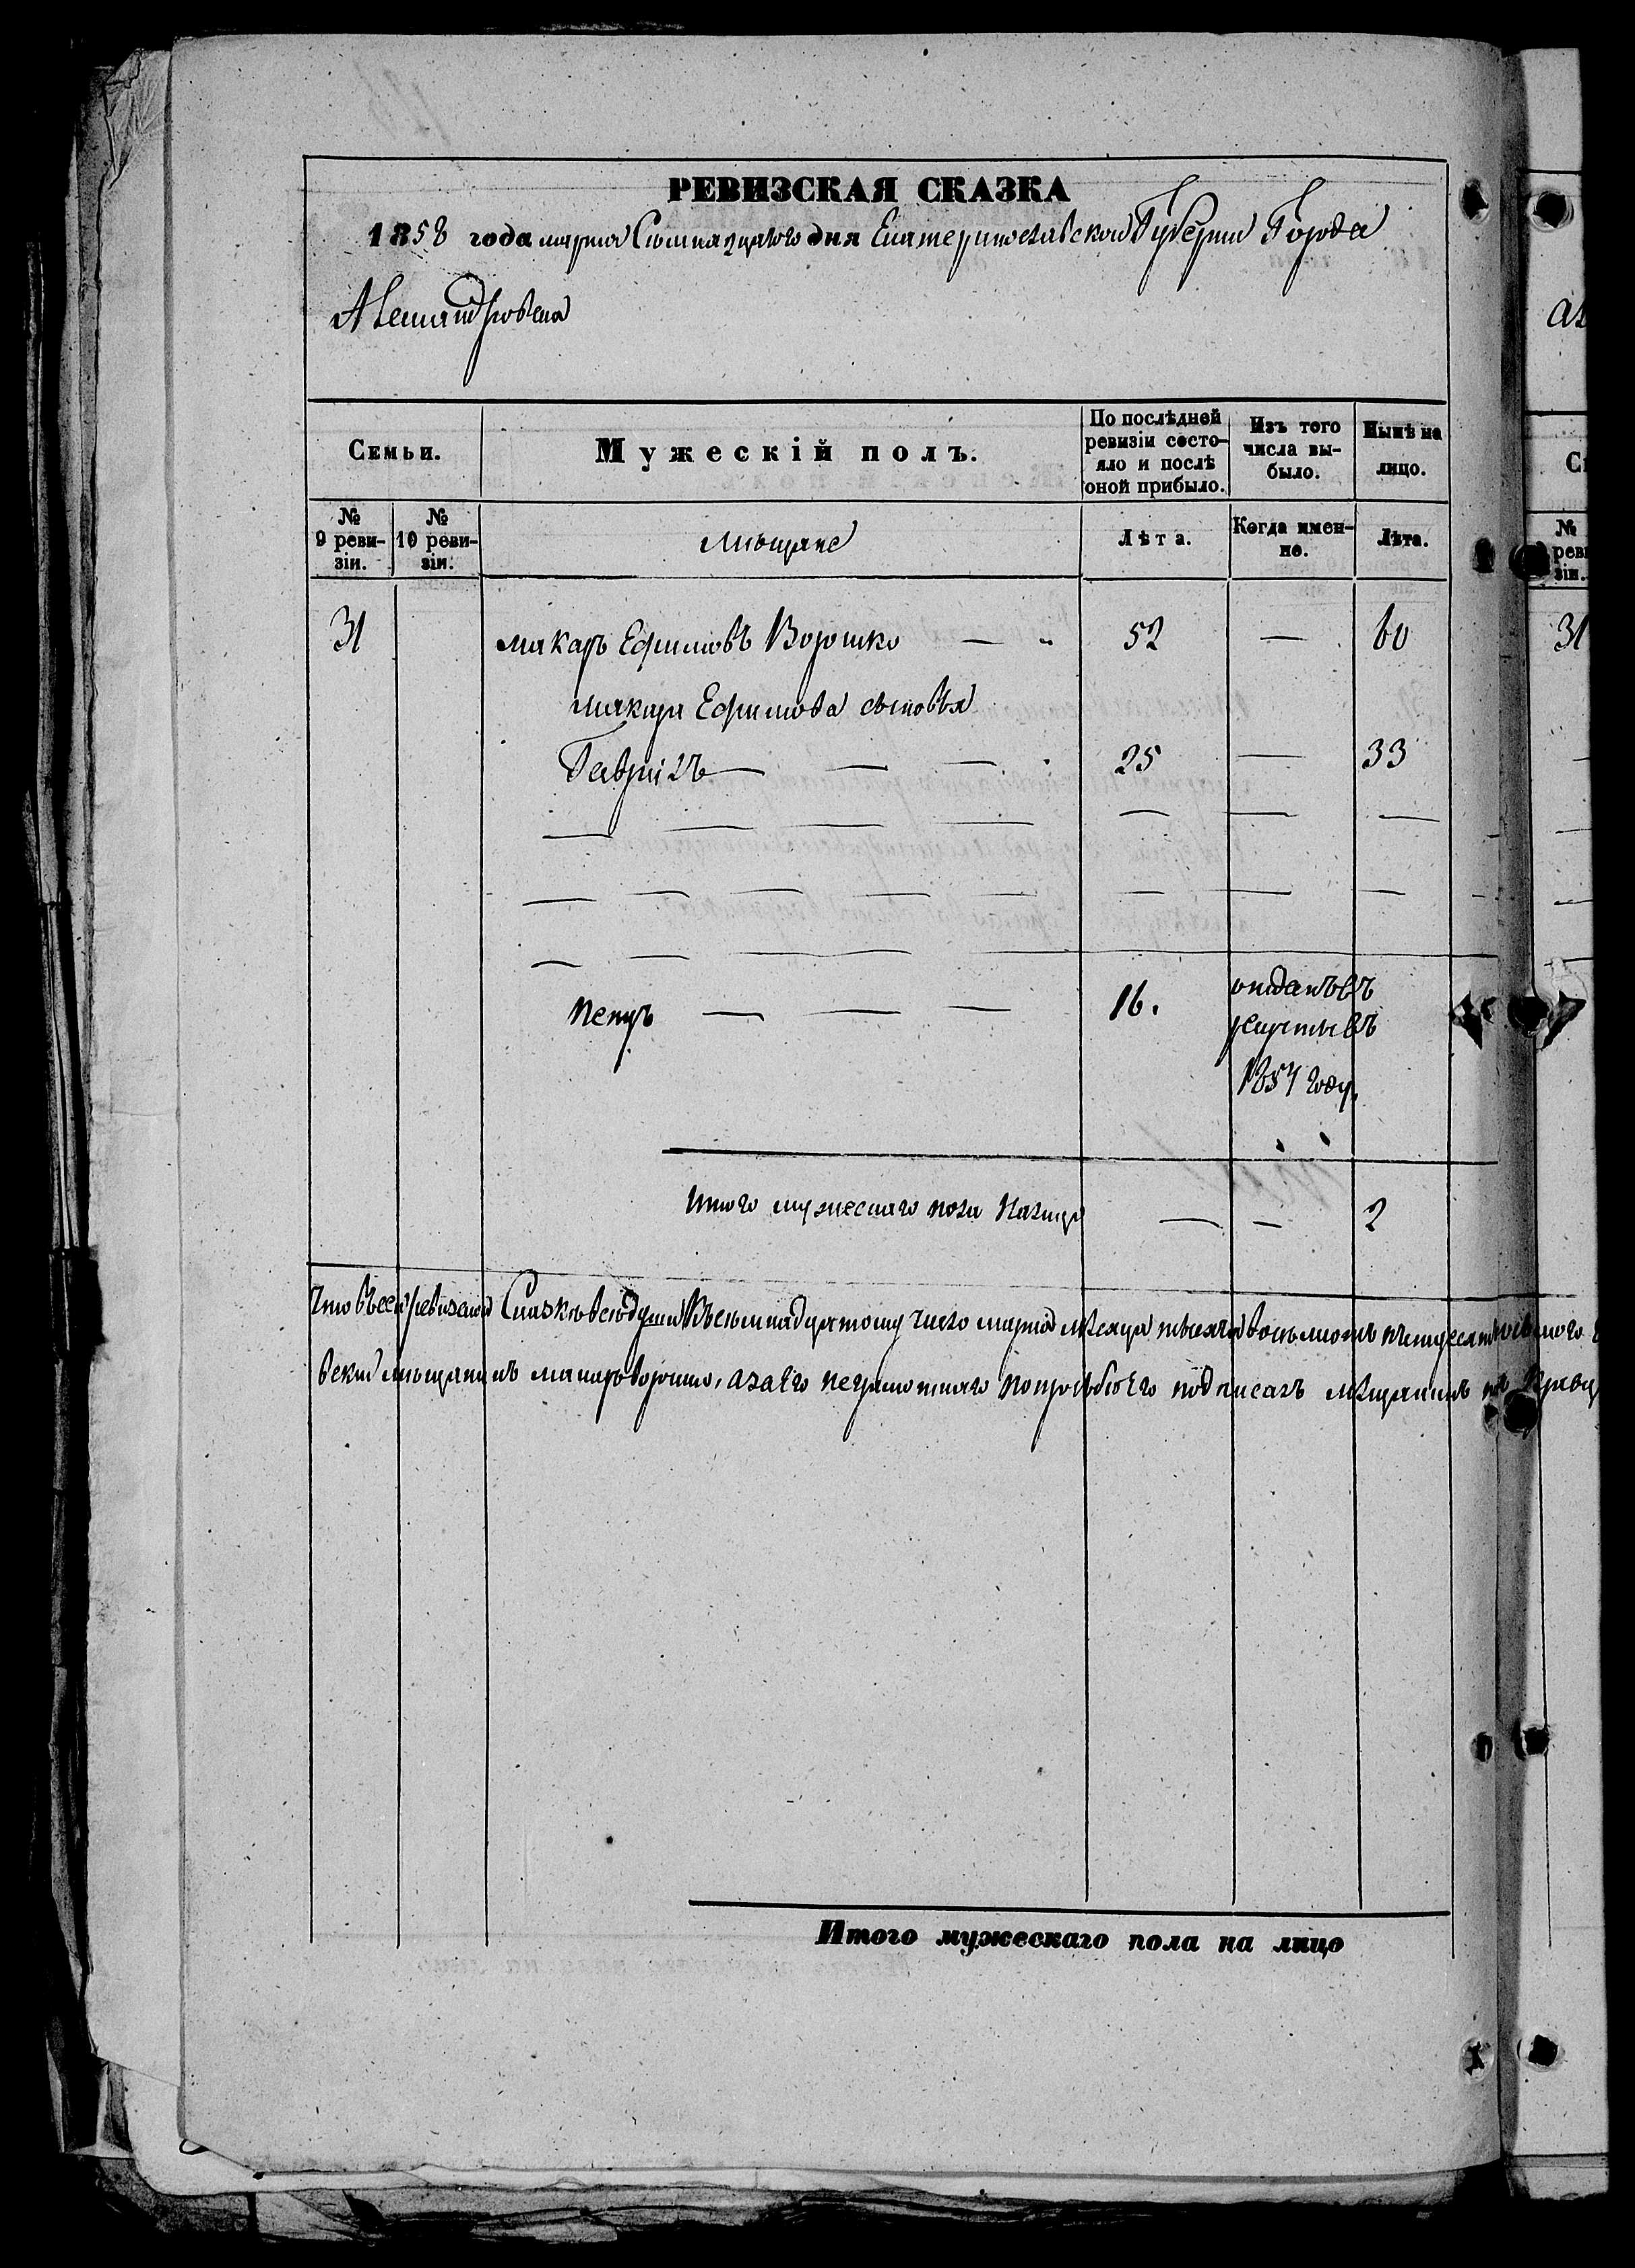 РЕВИЗСКАЯ СКАЗКА
1858 года марта Семнадцатого дня Екатеринославской Губернии Города
Александровска
Семьи.
Мужескій полъ.
По послѣдней ревизіи состояло и послѣ оной прибыло.
Изъ того числа выбыло.
Нынѣ на лицо.
№ 9 ревизіи.
№ 10 ревизіи.
мѣщане
Лѣта.
Когда именно.
Лѣта.
31 макаръ Ефимовъ Ворошко — 52 — 60
макара Ефимова сыновья
Гавріилъ — — — 25 — 33
петръ — — — 16. отданъ въ
рекруты въ
1857 году.
Итого мужескаго пола Налицо — — 2
Что въ сей ревизской Сказкѣ всѣ души Къ семнадцатому число марта мѣсяца тысяча восьмотъ пятдесятъ
мѣщанинъ макаръ ворошко, а за его неграмотнаго по просьбѣ Его подписалъ мѣщанинъ
Итого мужескаго пола на лицо
31